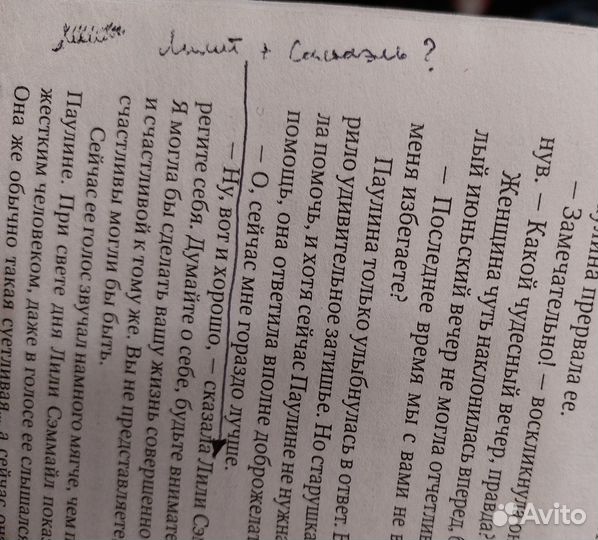 Лилит + Самаэль?
улина прервала ее.
— Замечательно! — воскликнула
нув. — Какой чудесный вечер, правда?
Женщина чуть наклонилась вперед,
лый июньский вечер не могла отчетлив
— Последнее время мы с вами не в
меня избегаете?
Паулина только улыбнулась в ответ. В
рило удивительное затишье. Но старушка
ла помочь, и хотя сейчас Паулине не нужна
помощь, она ответила вполне доброжелат
— О, сейчас мне гораздо лучше.
— Ну, вот и хорошо, — сказала Лили Сэ
регите себя. Думайте о себе, будьте внимате
Я могла бы сделать вашу жизнь совершенно
и счастливой к тому же. Вы не представляете,
счастливы могли бы быть.
Сейчас ее голос звучал намного мягче, чем п
Паулине. При свете дня Лили Сэммайл показ
жестким человеком, даже в голосе ее слышался
Она же обычно такая суетливая... а сейчас он
Avito